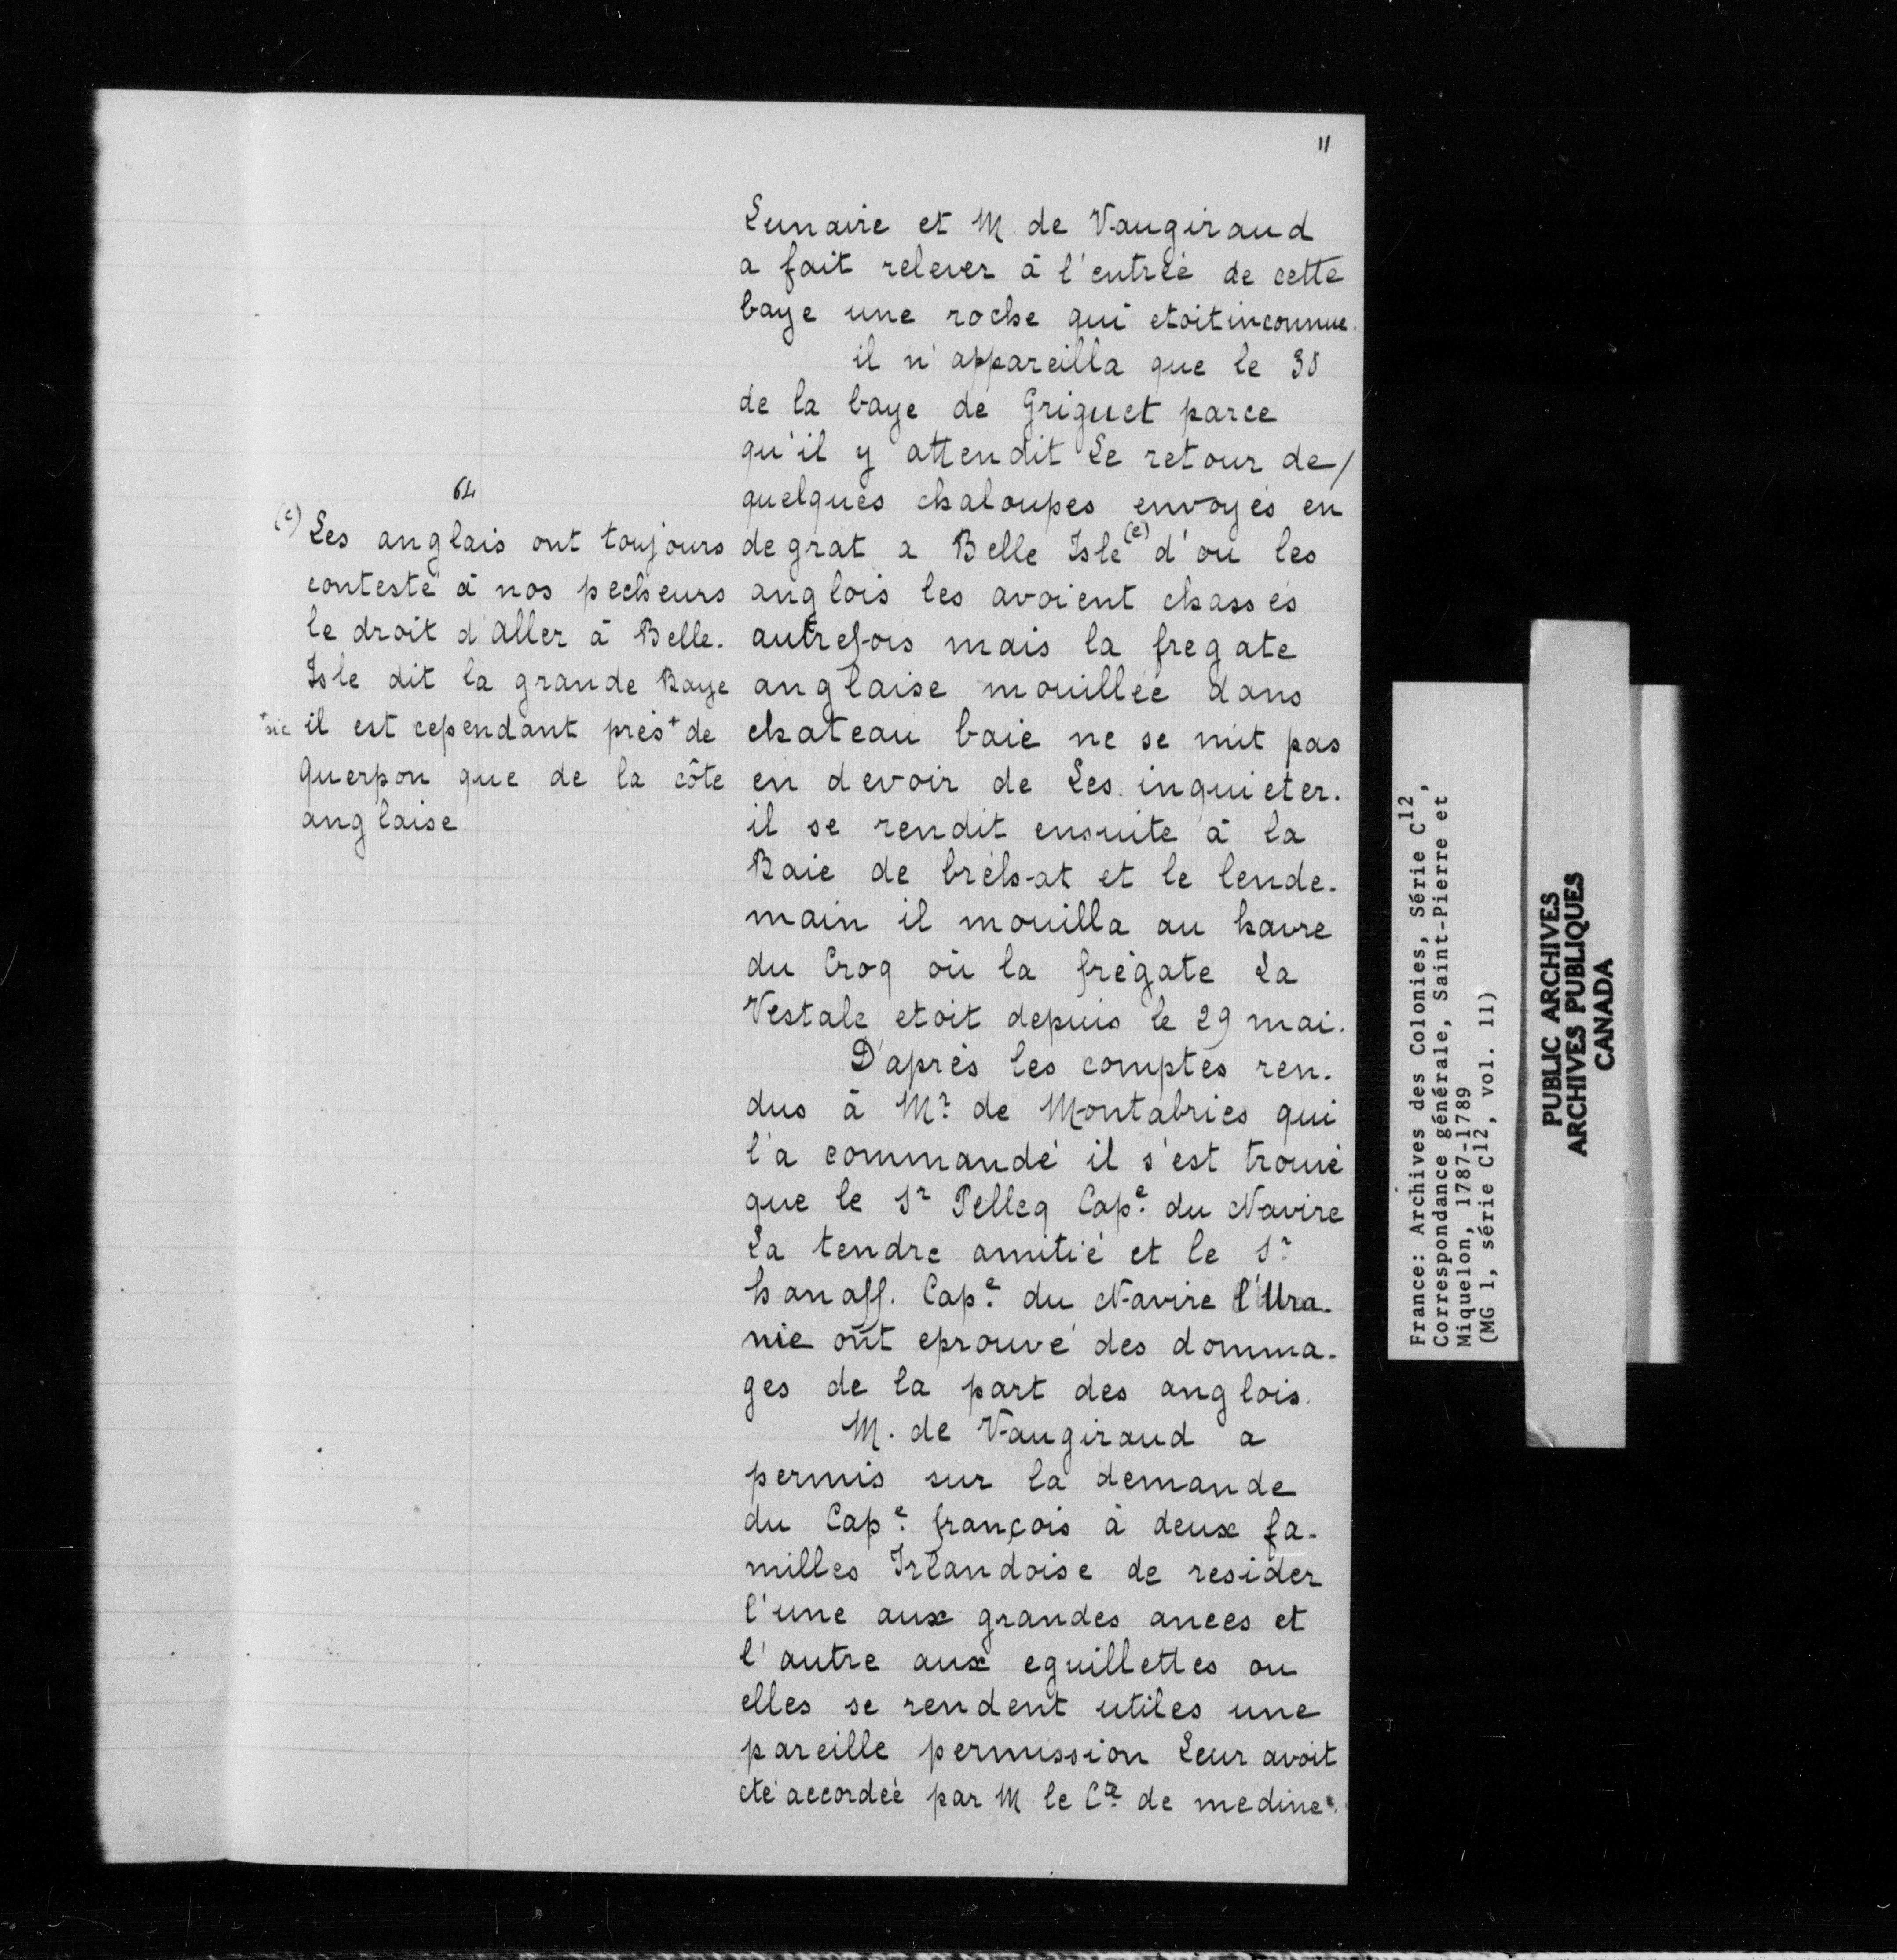 11
Lunaire et M de Vaugiraud
a fait relever à l'entrée de cette
baye une roche qui etoit inconnue.
il n'appareilla que le 30
de la baye de Griguet parce
qu'il y attendit Le retour de/
quelques chaloupes envoyés en
degrat a Belle Isle (c) d'ou les
anglois les avoient chassés
autrefois mais la fregate
anglaise mouillée dans
chateau baie ne se mit pas
en devoir de Les inquieter.
il se rendit ensuite à la
Baie de bréhat et le lende-
main il mouilla au havre
du Croq où la frégate La
Vestale etoit depuis le 29 mai.
D'après les comptes ren-
dus à Mr de Montabries qui
l'a commandé il s'est trouvé
que le Sr Pelleq Cape du Navire
La tendre amitié et le Sr
hanaff. Cape du Navire l'Ura-
nie ont eprouvé des domma-
ges de la part des anglois.
M. de Vaugiraud a
permis sur la demande
du Cape françois à deux fa-
milles Irlandoise de resider
l'une aux grandes ances et
l'autre aux eguillettes ou
elles se rendent utiles une
pareille permission Leur avoit
eté accordée par M le Cte de medine
64
(c) Les anglais ont toujours
contesté à nos pecheurs
le droit d'aller à Belle-
Isle dit la grande Baye
+sic il est cependant près+ de
Querpon que de la côte
anglaise
France: Archives des Colonies, Série C12,
Correspondance générale, Saint-Pierre et
Miquelon, 1787-1789
(MG 1, série C12, vol. 11)
PUBLIC ARCHIVES
ARCHIVES PUBLIQUES
CANADA